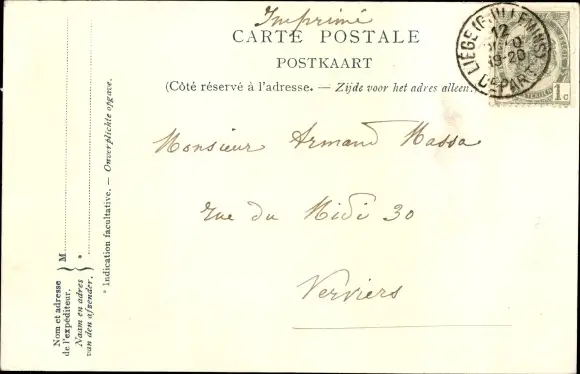 Imprimé
CARTE POSTALE
POSTKAART
(Côté réservé à l'adresse. — Zijde voor het adres alleen.)
LIÉGE (GUILLEMINS)
12
19-20
DEPART
1c
Monsieur Armand Massa
Rue du Midi 30
Verviers
Nom et adresse de l'expéditeur.
Naam en adres van den afzender.
M
*
* Indication facultative. — Onverplichte opgave.